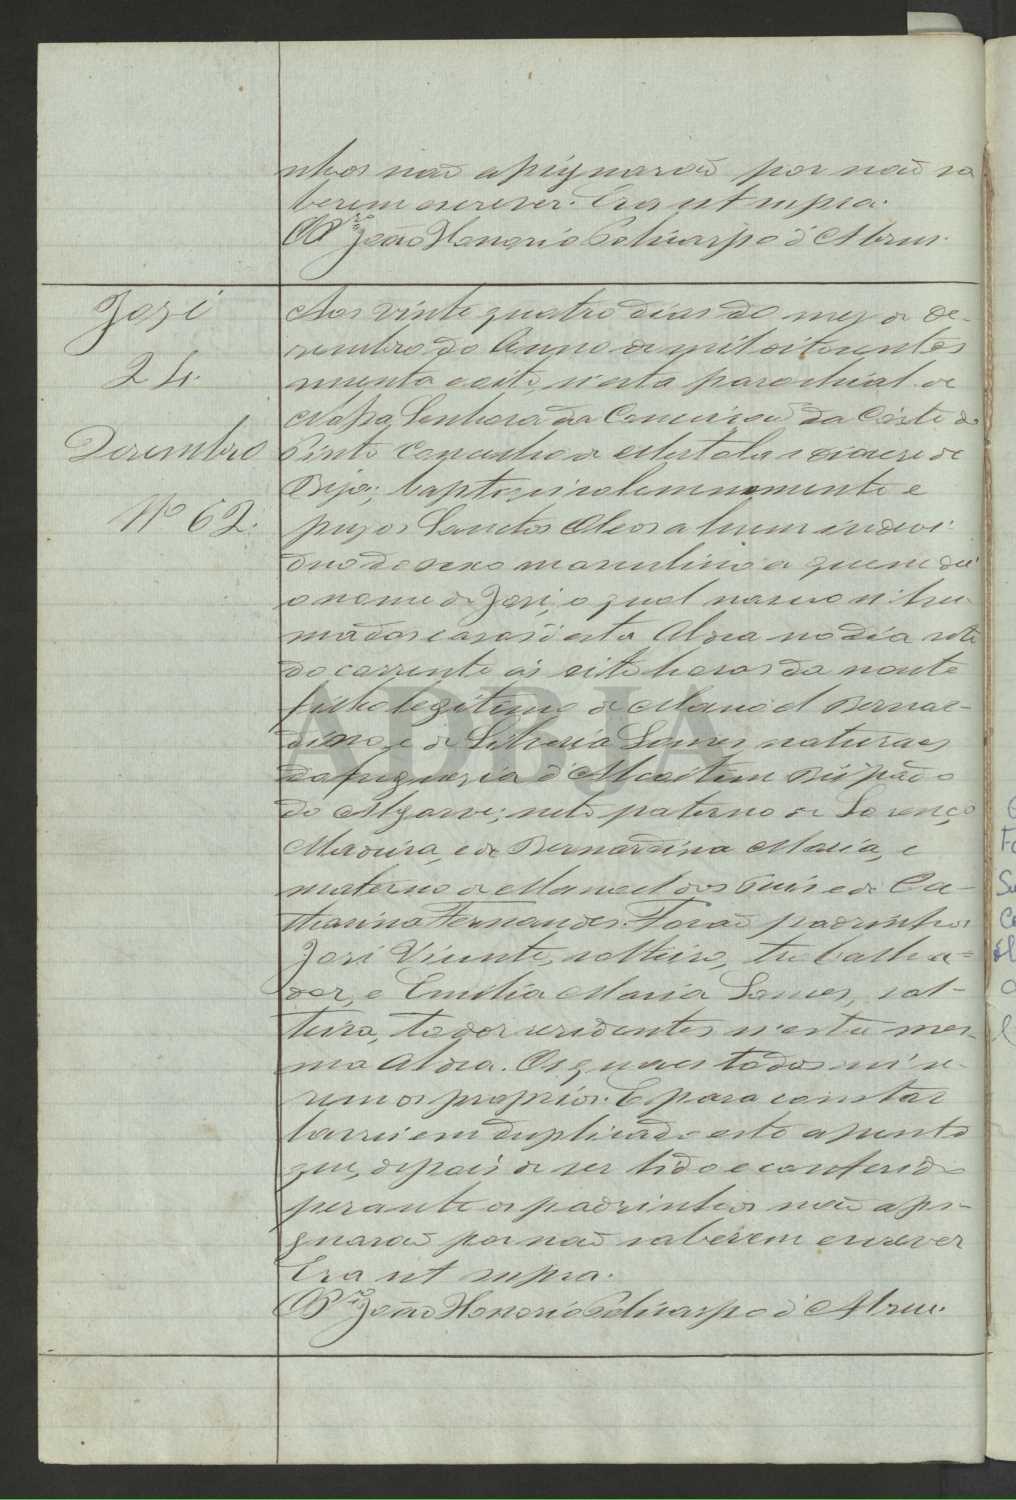 nhos naõ assignaraõ por naõ sa
berem escrever. Era ut supra.
O P.ro João Honorio Policarpo d'Abreu.
José
24.
Dezembro
Nº 62.
Aos vinte quatro dias do mez de De-
zembro do Anno de mil oitocentos
e oito, n'esta parochial de
Nossa Senhora da Conceiçaõ da
Pinto Concelho de Mertola e diocese de
Beja; baptizei solemnemente e
puz os Sanctos Oleos a hum indevi-
duo do sexo masculino a quem dei
o nome de José, o qual nasceo n'hu-
ma das casas d'esta Aldea no dia sete
do corrente ás oito horas da noute
filho legitimo de Manoel Bernar-
dino, e de Liberia Gomes, naturaes
da freguezia d'Alcoitim Bispado
do Algarve; neto paterno de Lorenço
Madeira, e de Bernardina Maria, e
materno de Manoel dos Reis e de Ca-
tharina Fernandes. Foraõ padrinhos
José Vicente, solteiro, trabalha-
dor, e Emilia Maria Gomes, sol-
teira, todos residentes n'esta mes-
ma Aldea. Os quaes todos sei se-
rem os proprios. E para constar
lavrei em duplicado este assento
que, depois de ser lido e conferido
perante os padrinhos naõ assi-
gnaraõ por naõ saberem escrever
Era ut supra.
O P.ro João Honorio Policarpo d'Abreu.
ADBJA